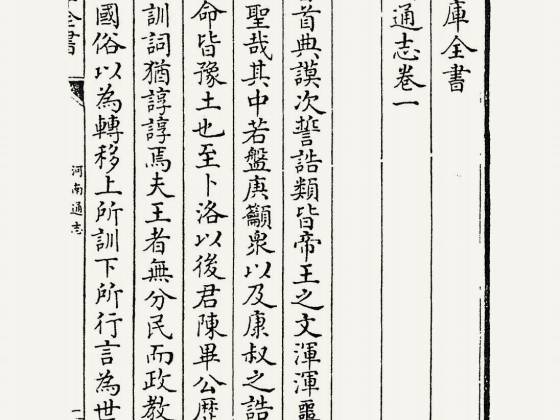 庫全書
通志卷一
首典謨次誓誥類皆帝王之文渾渾噩
聖哉其中若盤庚籲衆以及康叔之誥
命皆豫土也至卜洛以後君陳畢公歷
訓詞猶諄諄焉夫王者無分民而政教
國俗以為轉移上所訓下所行言為世
全書
河南通志